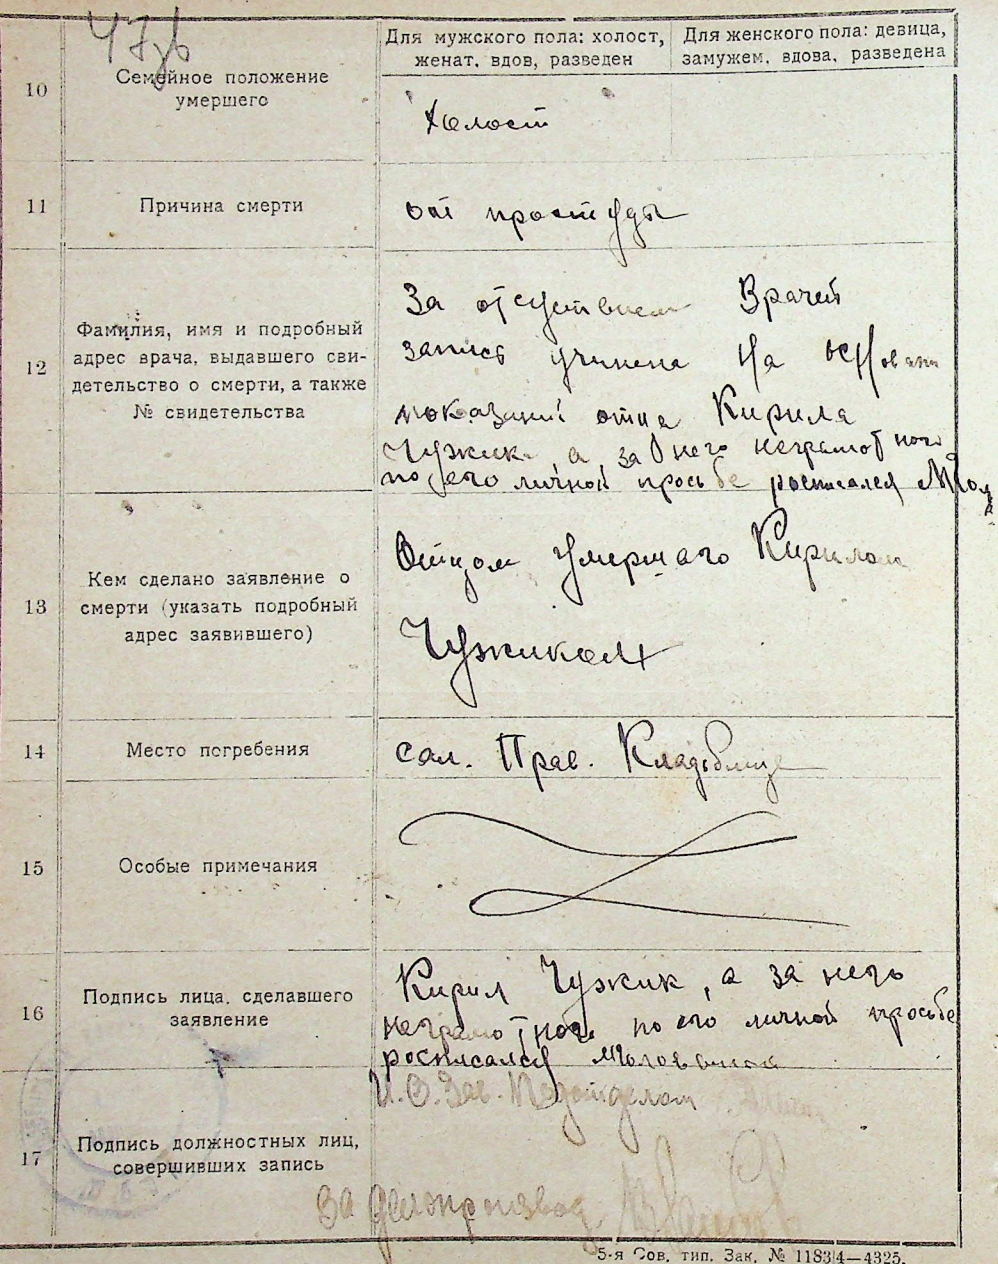 Для мужского пола: холост, женат, вдов, разведен
Для женского пола: девица, замужем, вдова, разведена
10
Семейное положение
умершего
холост
11
Причина смерти
от простуды
12
Фамилия, имя и подробный
адрес врача, выдавшего сви-
детельство о смерти, а также
№ свидетельства
За отсуствием Врачей
запись учинена на основани
показаний отца Кирила
Чужик, а за него неграмотного
по его личной просьбе росписался
13
Кем сделано заявление о
смерти (указать подробный
адрес заявившего)
Отцом умершаго Кирилом
Чужиком
14
Место погребения
сал. Прав. Кладбище
15
Особые примечания
16
Подпись лица, сделавшего
заявление
Кирил Чужик, а за него
неграмотного по его личной просьбе
росписался
17
Подпись должностных лиц,
совершивших запись
И.О. Зав. Подотделом
За делопроизвод
5-я Сов. тип. Зак. № 11834—4325.